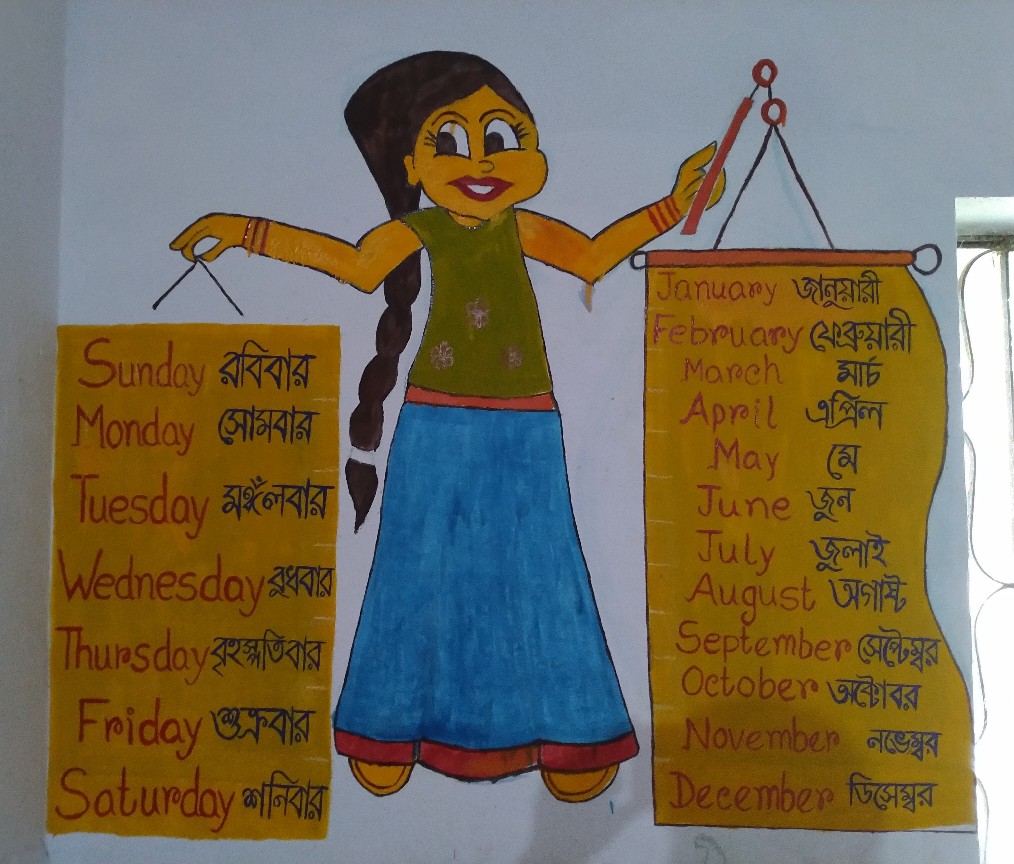 Sunday রবিবার
Monday সোমবার
Tuesday মঙ্গঁলবার
Wednesday বুধবার
Thursday বৃহস্পতিবার
Friday শুক্রবার
Saturday শনিবার
January জানুয়ারী
February ফেব্রুয়ারী
March মার্চ
April এপ্রিল
May মে
June জুন
July জুলাই
August অগাষ্ট
September সেপ্টেম্বর
October অক্টোবর
November নভেম্বর
December ডিসেম্বর